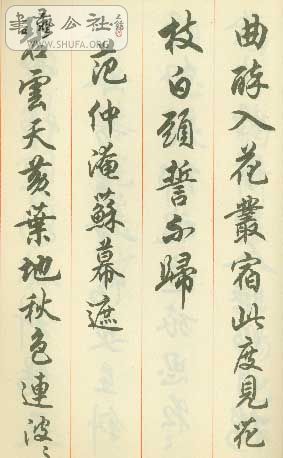 曲醉入花叢宿此度見花
枝白頭誓不歸
范仲淹蘇幕遮
碧雲天黃葉地秋色連波〻
書藝公社
WWW.SHUFA.ORG